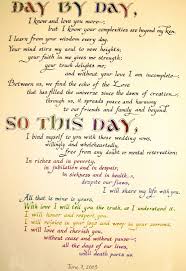 DAY BY DAY,
I know and love you more —
but I know your complexities are beyond my ken.
I learn from your wisdom every day.
Your mind stirs my soul to new heights;
your faith in me gives me strength;
your touch delights me;
and without your love I am incomplete —
Between us, we find the echo of the Love
that has filled the universe since the dawn of creation
through us, it spreads peace and harmony
to our friends and family and beyond.
SO THIS DAY,
I bind myself to you with these wedding vows,
willingly and wholeheartedly,
free from any doubt or mental reservation:
In riches and in poverty,
in jubilation and in despair
in sickness and in health
despite our flaws,
I will share my life with you.
All that is mine is yours.
With love I will tell you the truth, as I understand it.
I will honor and respect you,
I will rejoice in your joys and weep in your sorrows,
I will love and cherish you,
without cease and without pause —
all the days of our lives,
until death parts us.
June 7, 2003